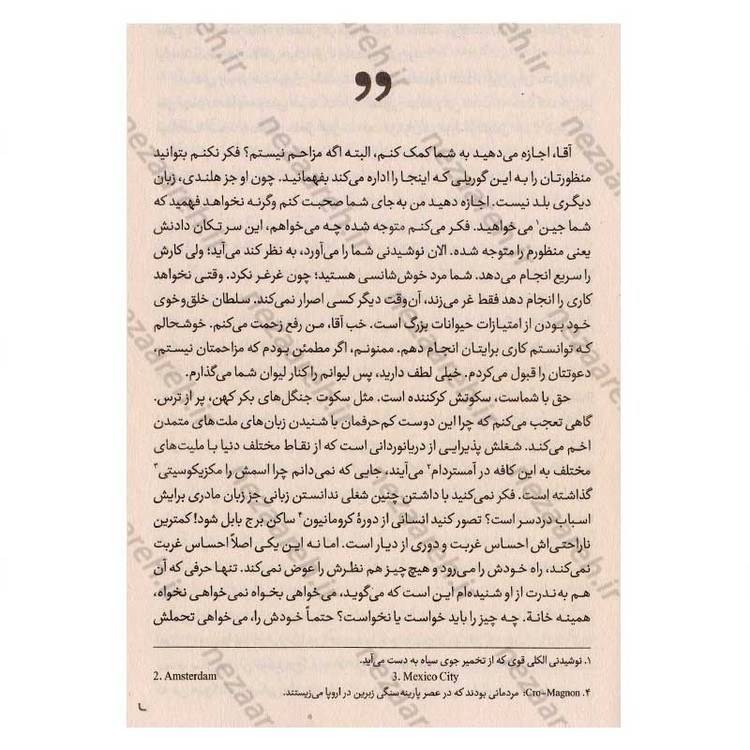 ”
آقا، اجازه می‌دهید به شما کمک کنم، البته اگه مزاحم نیستم؟ فکر نکنم بتوانید
منظورتان را به این گوریلی که اینجا را اداره می‌کند بفهمانید. چون او جز هلندی، زبان
دیگری بلد نیست. اجازه دهید من به‌جای شما صحبت کنم وگرنه نخواهد فهمید که
شما جین۱ می‌خواهید. فکر می‌کنم متوجه شده چه می‌خواهم، این سر تکان دادنش
یعنی منظورم را متوجه شده. الان نوشیدنی شما را می‌آورد، به نظر کند می‌آید؛ ولی کارش
را سریع انجام می‌دهد. شما مرد خوش‌شانسی هستید؛ چون غرغر نکرد. وقتی نخواهد
کاری را انجام دهد فقط غر می‌زند، آن‌وقت دیگر کسی اصرار نمی‌کند. سلطان خلق‌وخوی
خود بودن از امتیازات حیوانات بزرگ است. خب آقا، من رفع زحمت می‌کنم. خوشحالم
که توانستم کاری برایتان انجام دهم. ممنونم، اگر مطمئن بودم که مزاحمتان نیستم،
دعوتتان را قبول می‌کردم. خیلی لطف دارید، پس لیوانم را کنار لیوان شما می‌گذارم.
حق با شماست، سکوتش کرکننده است. مثل سکوت جنگل‌های بکر کهن، پر از ترس.
گاهی تعجب می‌کنم که چرا این دوست کم‌حرفمان با شنیدن زبان‌های ملت‌های متمدن
اخم می‌کند. شغلش پذیرایی از دریانوردانی است که از نقاط مختلف دنیا با ملیت‌های
مختلف به این کافه در آمستردام۲ می‌آیند، جایی که نمی‌دانم چرا اسمش را مکزیکوسیتی۳
گذاشته است. فکر نمی‌کنید با داشتن چنین شغلی ندانستن زبانی جز زبان مادری برایش
اسباب دردسر است؟ تصور کنید انسانی از دورهٔ کرومانیون۴ ساکن برج بابل شود! کمترین
ناراحتی‌اش احساس غربت و دوری از دیار است. اما نه این یکی اصلاً احساس غربت
نمی‌کند، راه خودش را می‌رود و هیچ‌چیز هم نظرش را عوض نمی‌کند. تنها حرفی که آن
هم به‌ندرت از او شنیده‌ام این است که می‌گوید، می‌خواهی بخواه نمی‌خواهی نخواه،
همینه خانة. چه چیز را باید خواست یا نخواست؟ حتماً خودش را، می‌خواهی تحملش
۱. نوشیدنی الکلی قوی که از تخمیر جوی سیاه به دست می‌آید.
2. Amsterdam 3. Mexico City
۴. Cro-Magnon: مردمانی بودند که در عصر پارینه‌سنگی زبرین در اروپا می‌زیستند.
nezaareh.ir